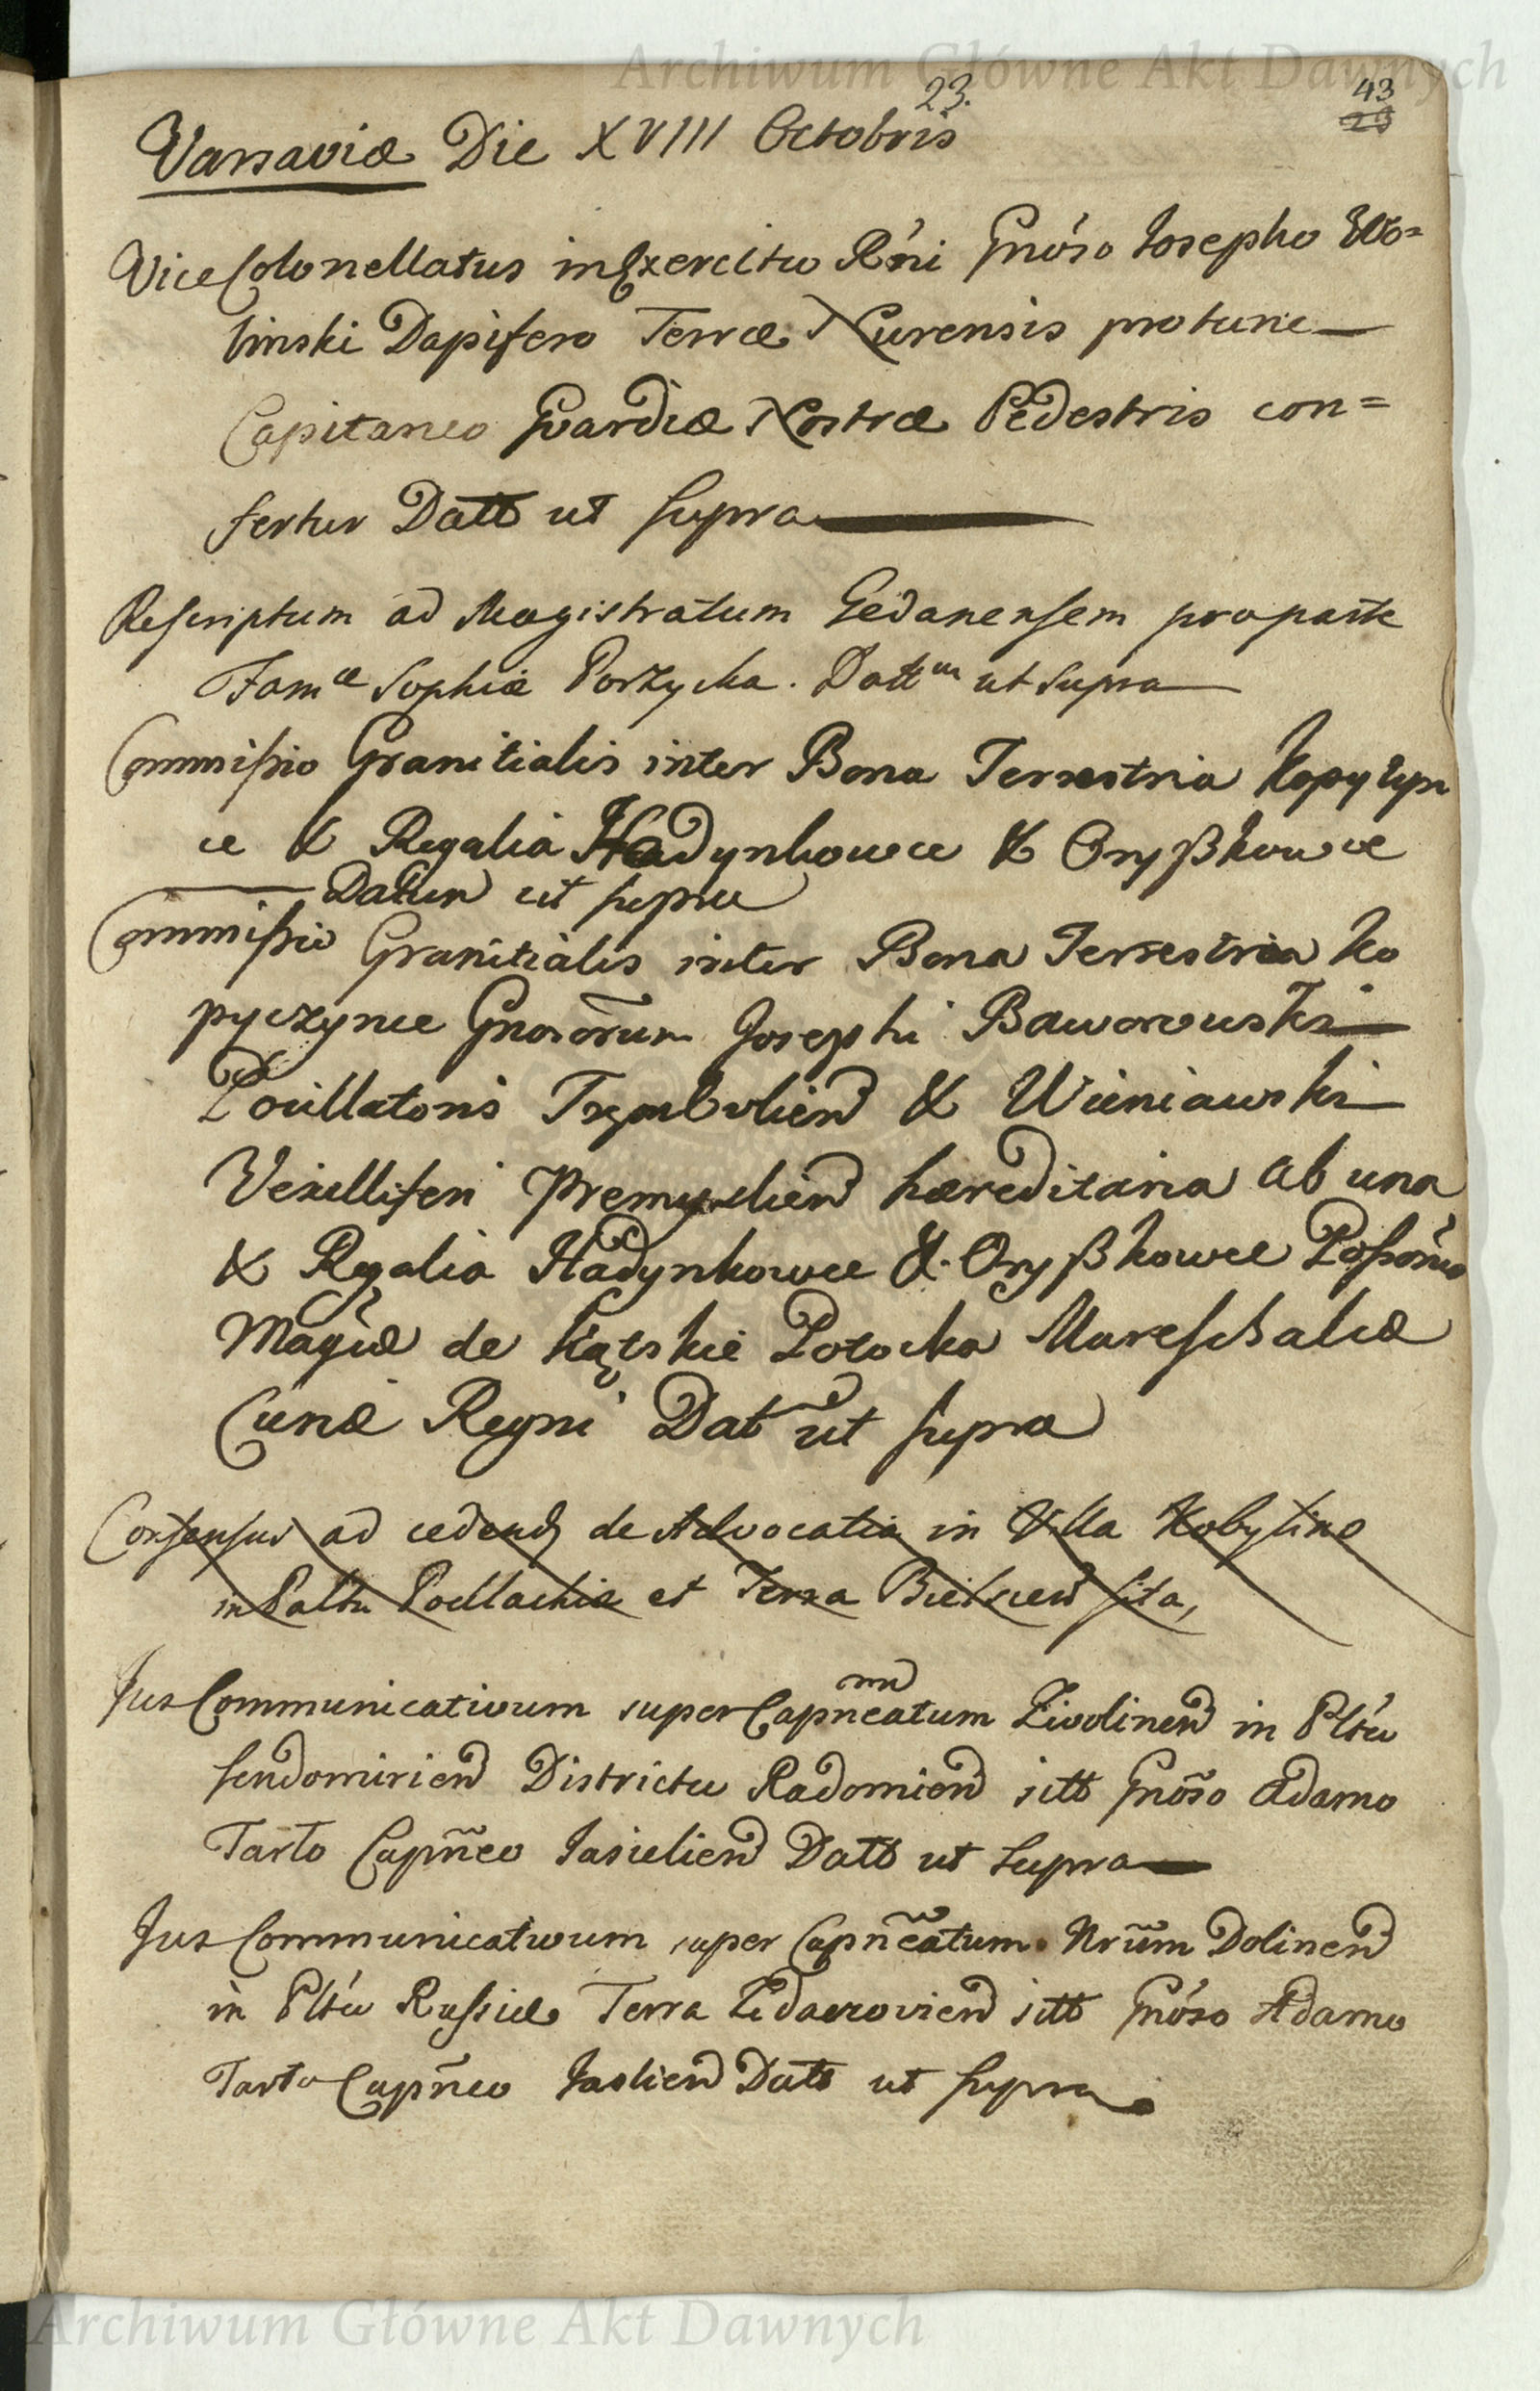 Archiwum Główne Akt Dawnych
23.
43
23
Varsaviæ Die XVIII Octobris
Vice Colonellatus in Exercitu Rńi Gnóso Josepho
linski Dapifero Terræ Nurensis protunc
Capitaneo Gvardiæ Nostræ Pedestris con=
fertur Datt ut supra
Rescriptum ad Magistratum Gedanensem pro parte
Famæ Sophiæ Porzycka. Dattm ut supra
Commissio Granitialis inter Bona Terrestria Kopyczyn
ce & Regalia Hadynkowce & Oryszkowce
Datur ut supra
Commissio Granitialis inter Bona Terrestria Ko
pyczynce Gnosõrum Josephi Baworowski
Pocillatoris Trembolien & Wieniawski
Vexilliferi Premyslien hæreditaria ab una
& Regalia Hadynkowce & Oryszkowce
Magcæ de Kątskie Potocka Mareschalcæ
Curiæ Regni Dat ut supra
Consensus ad cedend de Advocatia in Villa Kobylino
in Paltu Podlachiæ et Terra Bielscen sita,
Jus Communicativum super Capneatum nrum Zwolinen in Pltu
Sendomirien Districtu Radomien sitt Gnõso Adamo
Tarło Capñeo Jasielien Datt ut supra
Jus Communicativum super Capñeatum Nrũm Dolinen
in Pltu Russiæ Terra Zidaczovien sitt Gnóso Adamo
Tarło Capñeo Jaslien Datt ut supra
Archiwum Główne Akt Dawnych